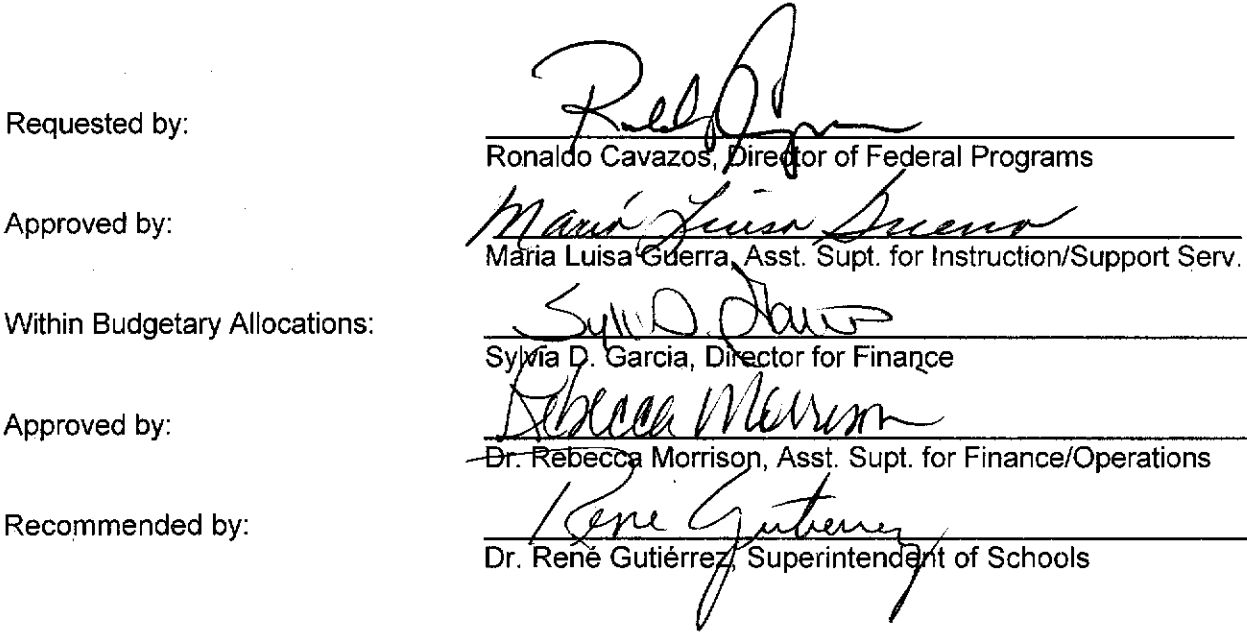 Requested by:
Ronaldo Cavazos, Director of Federal Programs
Approved by:
Maria Luisa Guerra
Maria Luisa Guerra, Asst. Supt. for Instruction/Support Serv.
Within Budgetary Allocations:
Sylvia D. Garcia, Director for Finance
Approved by:
Rebecca Morrison
Dr. Rebecca Morrison, Asst. Supt. for Finance/Operations
Recommended by:
Rene Gutierrez
Dr. René Gutiérrez, Superintendent of Schools